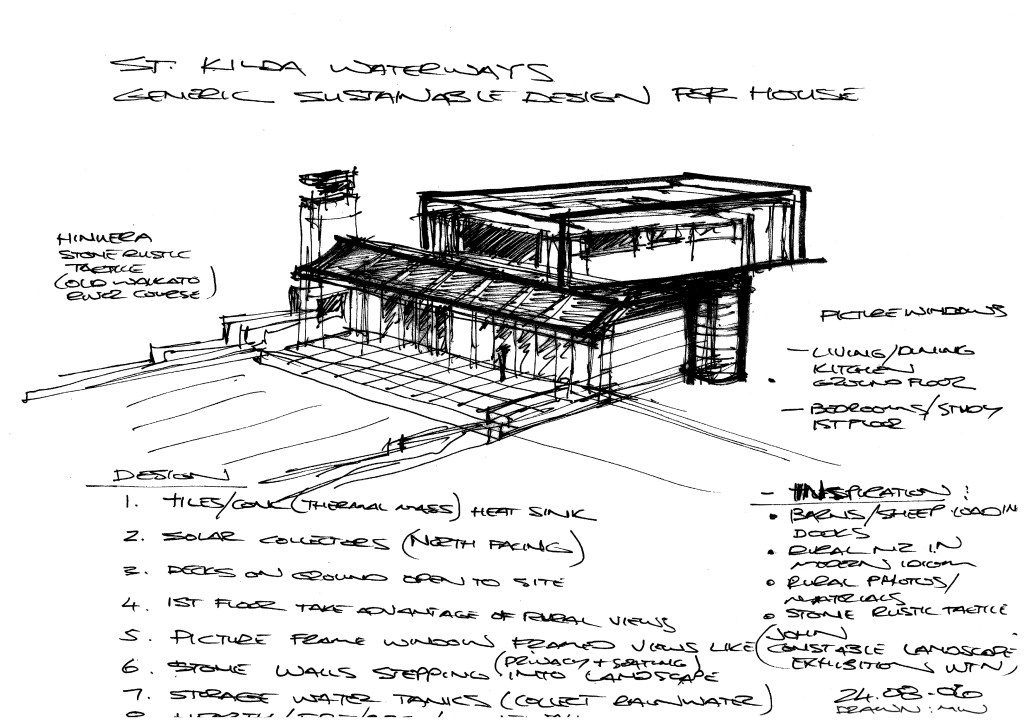 ST. KILDA WATERWAYS
GENERIC SUSTAINABLE DESIGN FOR HOUSE
HINUERA
STONE RUSTIC
TACTILE
(OLD WAIKATO
RIVER COURSE)
PICTURE WINDOWS
– LIVING/DINING
KITCHEN
GROUND FLOOR
– BEDROOMS/STUDY
1ST FLOOR
DESIGN
1. TILES/CONC (THERMAL MASS) HEAT SINK
2. SOLAR COLLECTORS (NORTH FACING)
3. DECKS ON GROUND OPEN TO SITE
4. 1ST FLOOR TAKE ADVANTAGE OF RURAL VIEWS
5. PICTURE FRAME WINDOW FRAMED VIEWS LIKE (JOHN
CONSTABLE LANDSCAPE
EXHIBITION WTN)
6. STONE WALLS STEPPING (PRIVACY + SEATING) INTO LANDSCAPE
7. STORAGE WATER TANKS (COLLECT RAINWATER)
– INSPIRATION:
• BARNS/SHEEP LOADIN
DOCKS
• RURAL NZ IN
MODERN IDIOM
• RURAL PHOTOS/
MATERIALS
• STONE RUSTIC TACTILE
24.08.06
DRAWN: MW